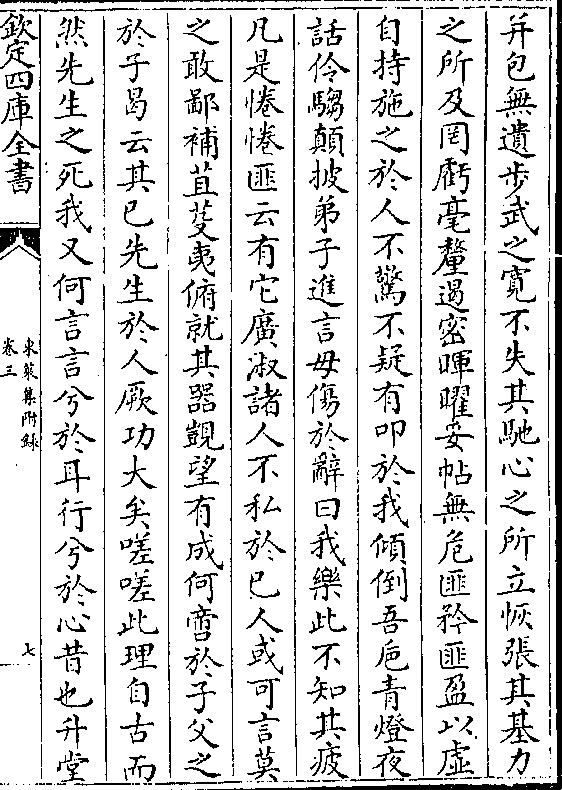 并包無遺步武之寛不失其馳心之所立恢張其基力
之所及罔虧毫釐遏密暉曜妥帖無危匪矜匪盈以虚
自持施之於人不驚不疑有叩於我傾倒吾巵青燈夜
話伶騶顛披弟子進言毋傷於辭曰我樂此不知其疲
凡是惓惓匪云有它廣淑諸人不私於已人或可言莫
之敢鄙補苴芟夷俯就其器覬望有成何啻於子父之
於子曷云其已先生於人厥功大矣嗟嗟此理自古而
然先生之死我又何言言兮於耳行兮於心昔也升堂
欽定四庫全書
東萊集附録
卷三
七